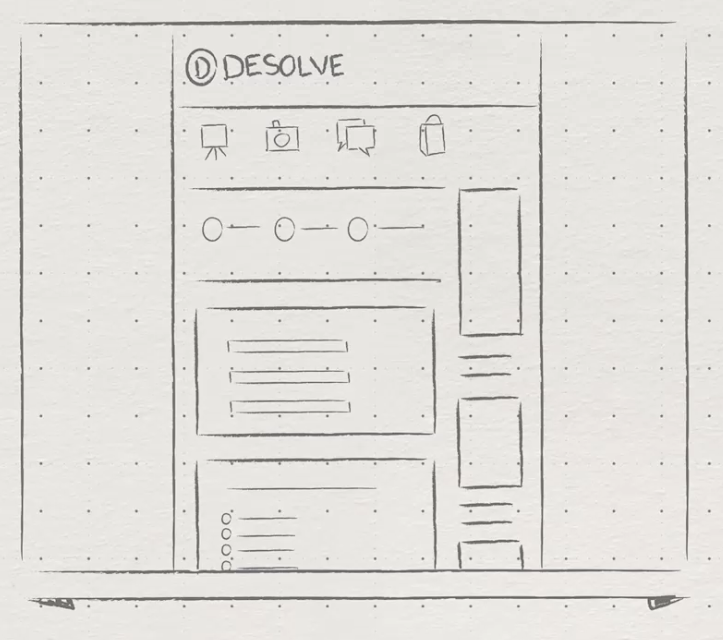 D DESOLVE